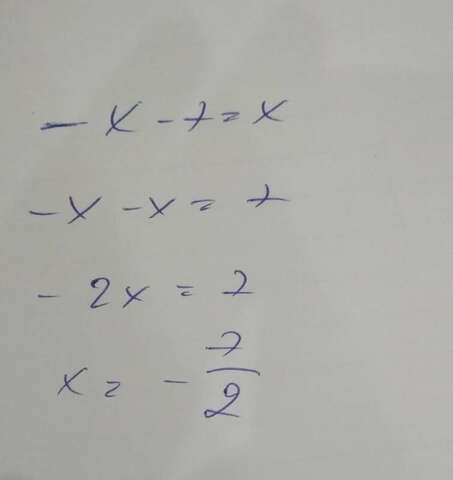 - x - 7 = x
- x - x = 7
- 2x = 7
x = - 7/2